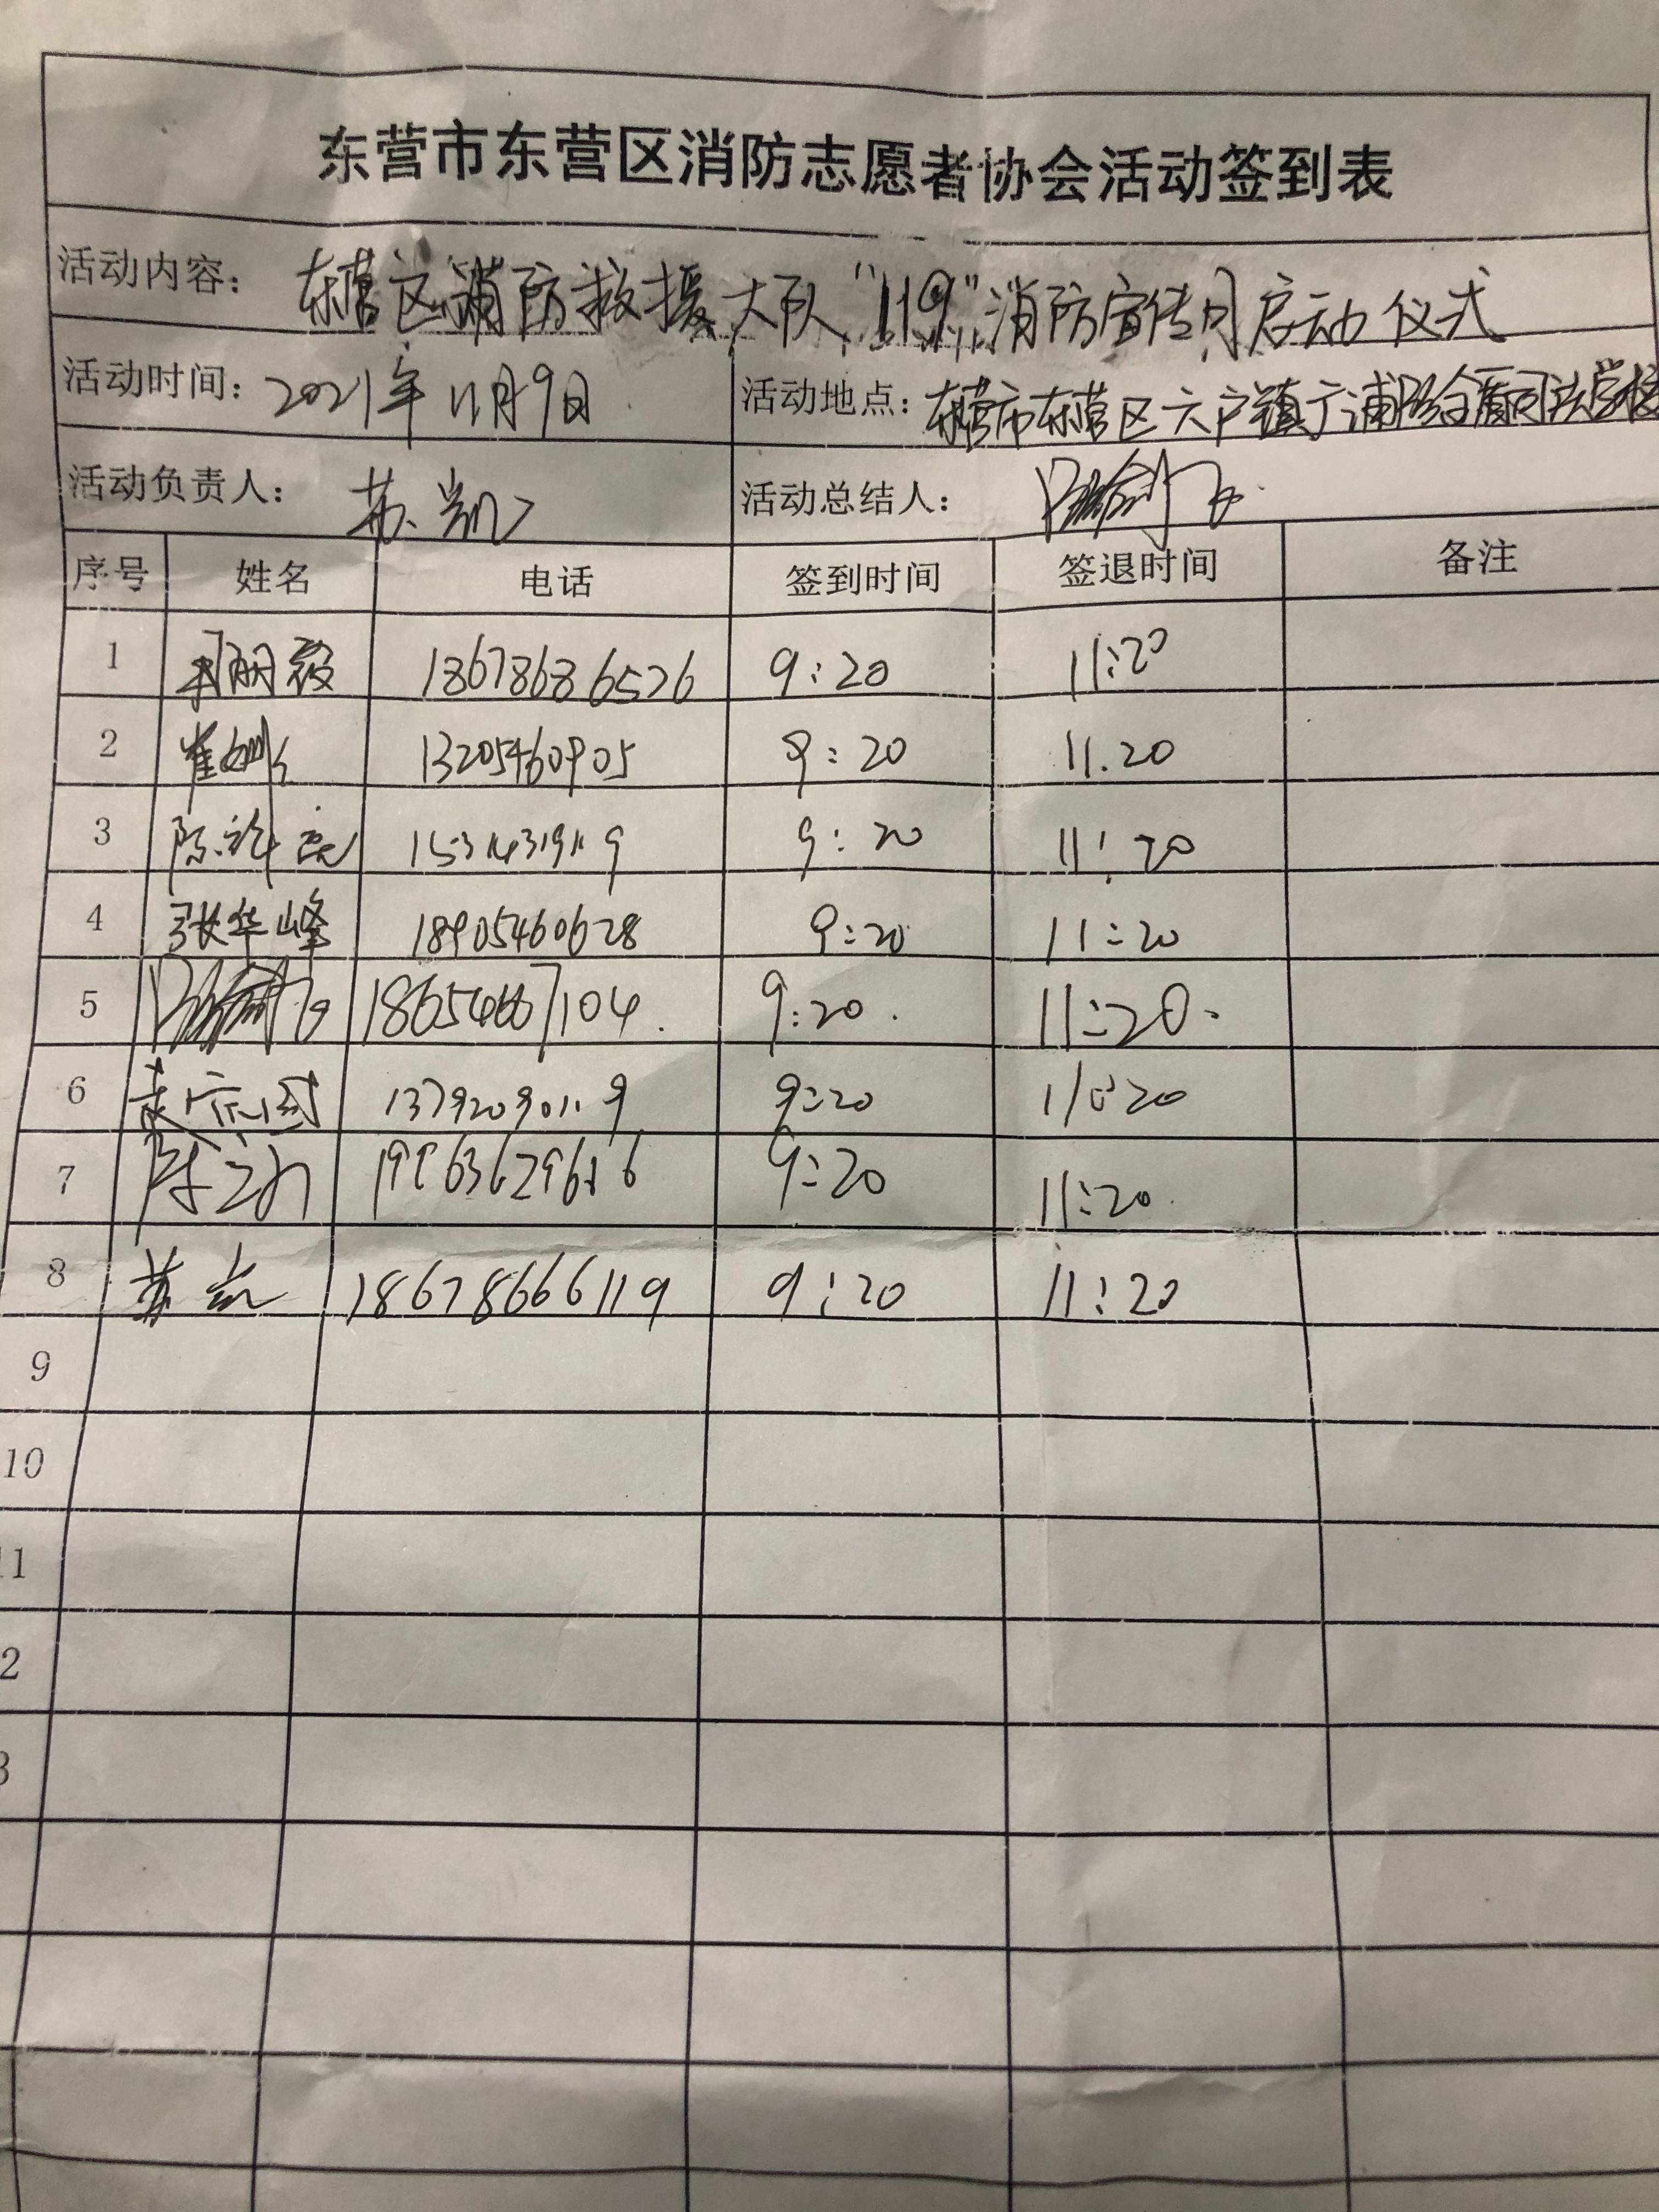 东营市东营区消防志愿者协会活动签到表
活动内容: 东营区消防救援大队"119"消防宣传月启动仪式
活动时间: 2021年11月9日 活动地点: 东营市东营区六户镇宁浦路
活动负责人: 苏凯 活动总结人:
序号 姓名 电话 签到时间 签退时间 备注
1 18678686526 9:20 11:20
2 崔 13205460905 9:20 11.20
3 陈 9:20 11:20
4 张华峰 18905460628 9:20 11:20
5 18654667104 9:20 11:20
6 13792090119 9:20 11:20
7 9:20 11:20
8 苏凯 18678666119 9:20 11:20
9
10
11
2
3